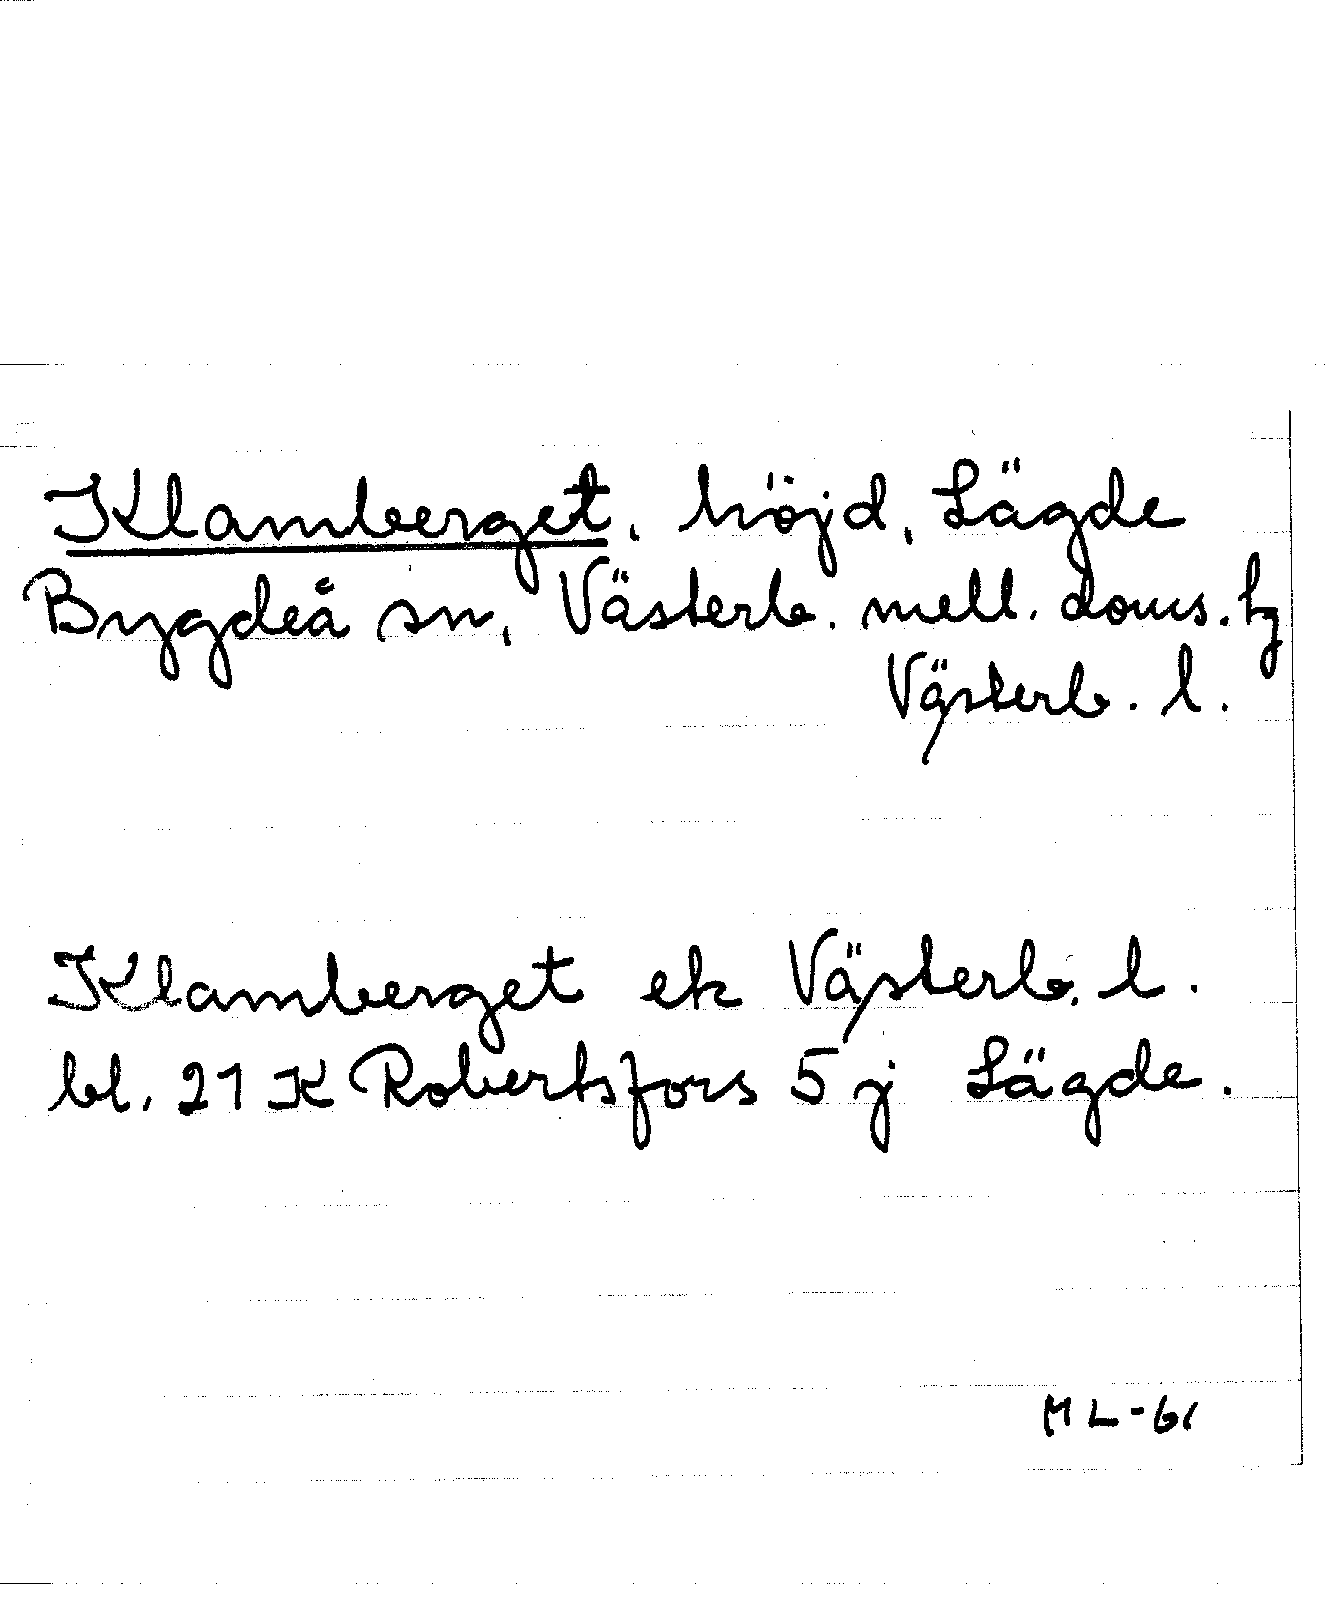 Klamberget, höjd, Lägde
Bygdeå sn, Västerb. mell. doms. tg
Västerb. l.
Klamberget ek Västerb. l.
bl. 21 K Robertsfors 5 j Lägde.
ML-61